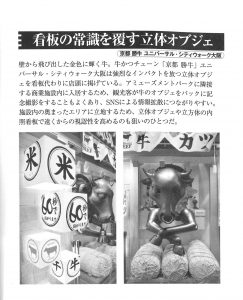 看板の常識を覆す立体オブジェ
京都 勝牛 ユニバーサル・シティウォーク大阪
壁から飛び出した金色に輝く牛。牛かつチェーン「京都 勝牛」ユニ
バーサル・シティウォーク大阪は強烈なインパクトを放つ立体オブジ
ェを看板代わりに店頭に掲げている。アミューズメントパークに隣接
する商業施設内に入居するため、観光客が牛のオブジェをバックに記
念撮影をすることもよくあり、SNSによる情報拡散につながりやすい。
施設内の奥まったエリアに立地するため、立体オブジェや立方体の内
照看板で遠くからの視認性を高めるのも狙いのひとつだ。
米
米
60秒
60秒
牛
牛カツ